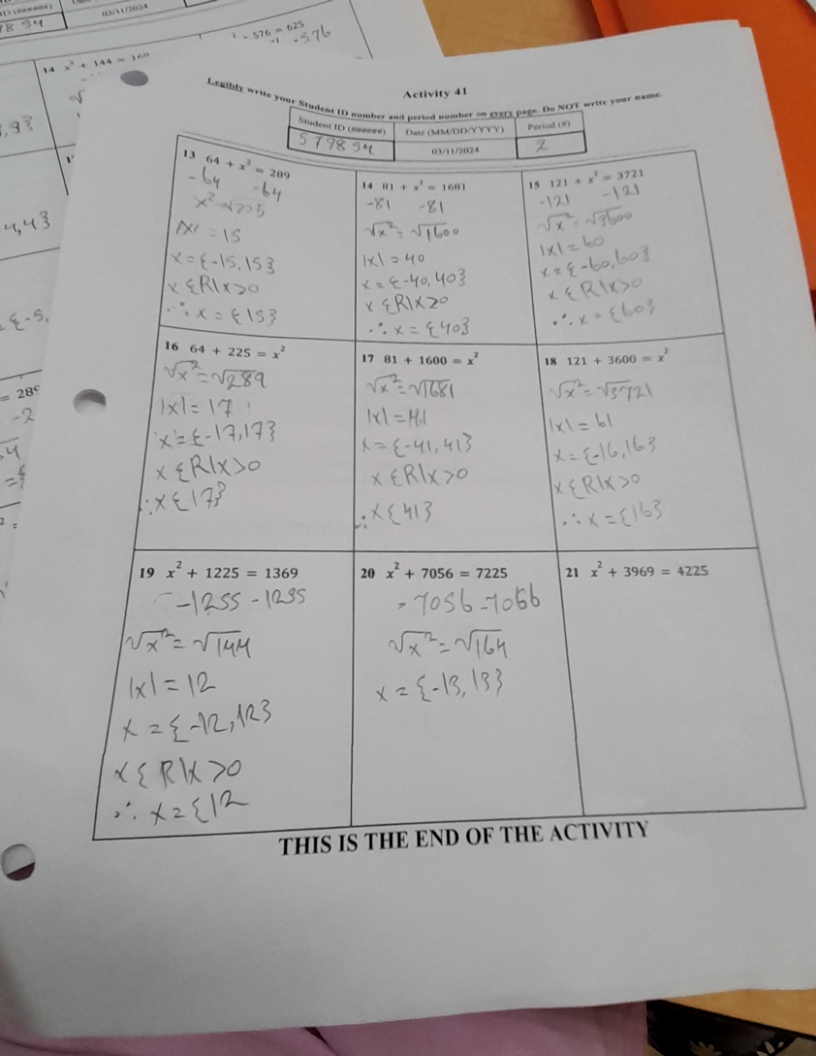 03/11/2024
14 x² + 144 = 169
² + 576 = 625
-576
4,43
= 289
-2
Activity 41
Legibly write your Student ID number and period number on every page. Do NOT write your name.
Student ID (######) Date (MM/DD/YYYY) Period (#)
579894 03/11/2024 2
13 64 + x² = 289
-64 -64
|x| = 15
x = {-15, 15}
x {R|x>0
∴ x = {15}
14 81 + x² = 1681
-81 -81
√x² = √1600
|x| = 40
x = {-40, 40}
x {R|x>0
∴ x = {40}
15 121 + x² = 3721
-121 -121
√x² = √3600
|x| = 60
x = {-60, 60}
x {R|x>0
∴ x = {60}
16 64 + 225 = x²
√x² = √289
|x| = 17
x = {-17, 17}
x {R|x>0
∴ x {17}
17 81 + 1600 = x²
√x² = √1681
|x| = 41
x = {-41, 41}
x {R|x>0
∴ x {41}
18 121 + 3600 = x²
√x² = √3721
|x| = 61
x = {-16, 16}
x {R|x>0
∴ x = {16}
19 x² + 1225 = 1369
-1255 -1235
√x² = √144
|x| = 12
x = {-12, 12}
x { R|x >0
∴ x = {12
20 x² + 7056 = 7225
- 7056 -7056
√x² = √164
x = {-13, 13}
21 x² + 3969 = 4225
THIS IS THE END OF THE ACTIVITY